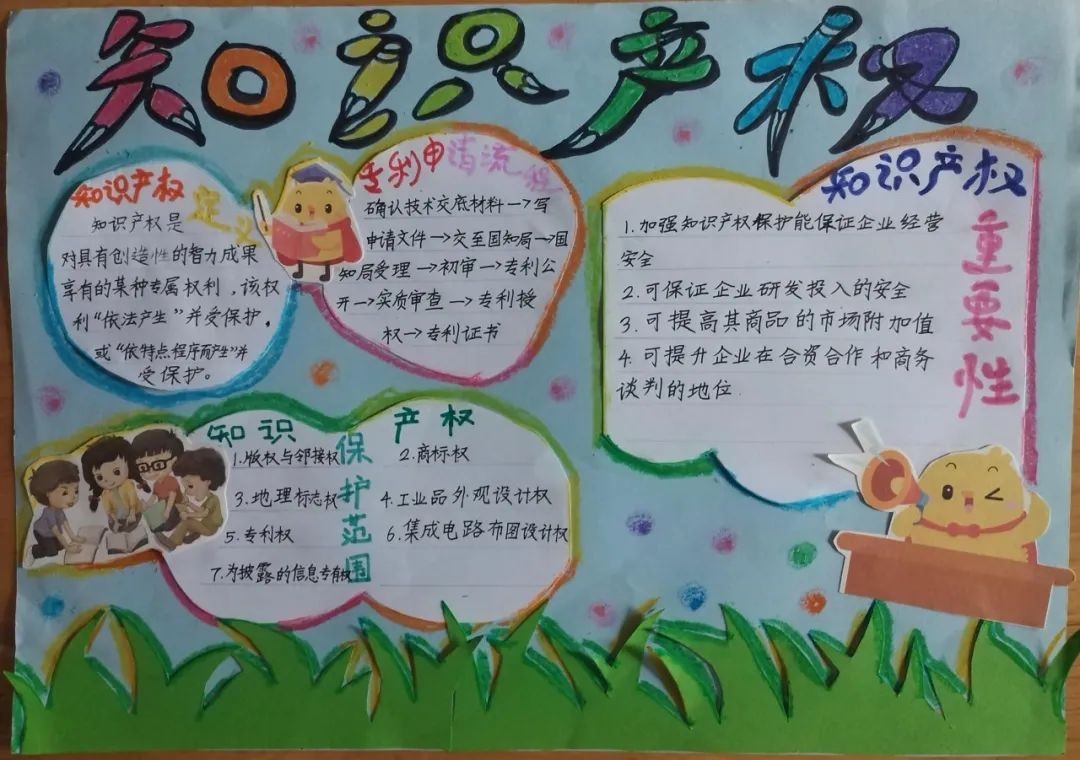 知识产权
知识产权
定义
知识产权是
对具有创造性的智力成果
享有的某种专属权利，该权
利“依法产生”并受保护，
或“依特点程序而产生”并
受保护。
专利申请流程
确认技术交底材料→写
申请文件→交至国知局→国
知局受理→初审→专利公
开→实质审查→专利授
权→专利证书
知识产权
重要性
1.加强知识产权保护能保证企业经营
安全
2.可保证企业研发投入的安全
3.可提高其商品的市场附加值
4.可提升企业在合资合作和商务
谈判的地位.
知识产权
保护范围
1.版权与邻接权
2.商标权
3.地理标志权
4.工业品外观设计权
5.专利权
6.集成电路布图设计权
7.为披露的信息专有权